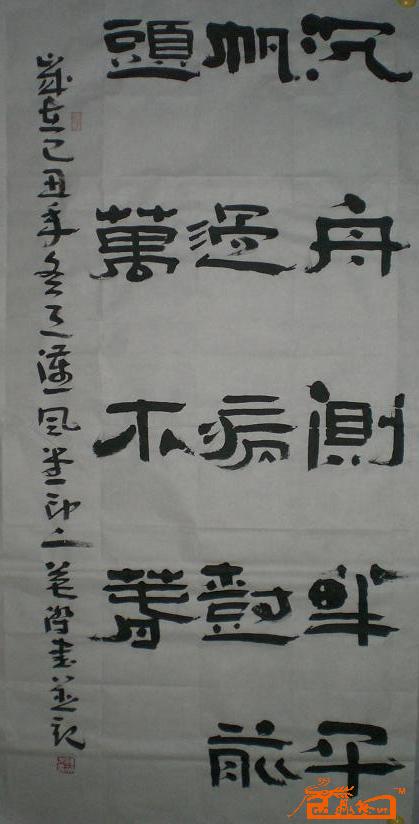 沉舟側畔千
帆過病樹前
頭萬木春
歲在己丑年冬風堂書並記